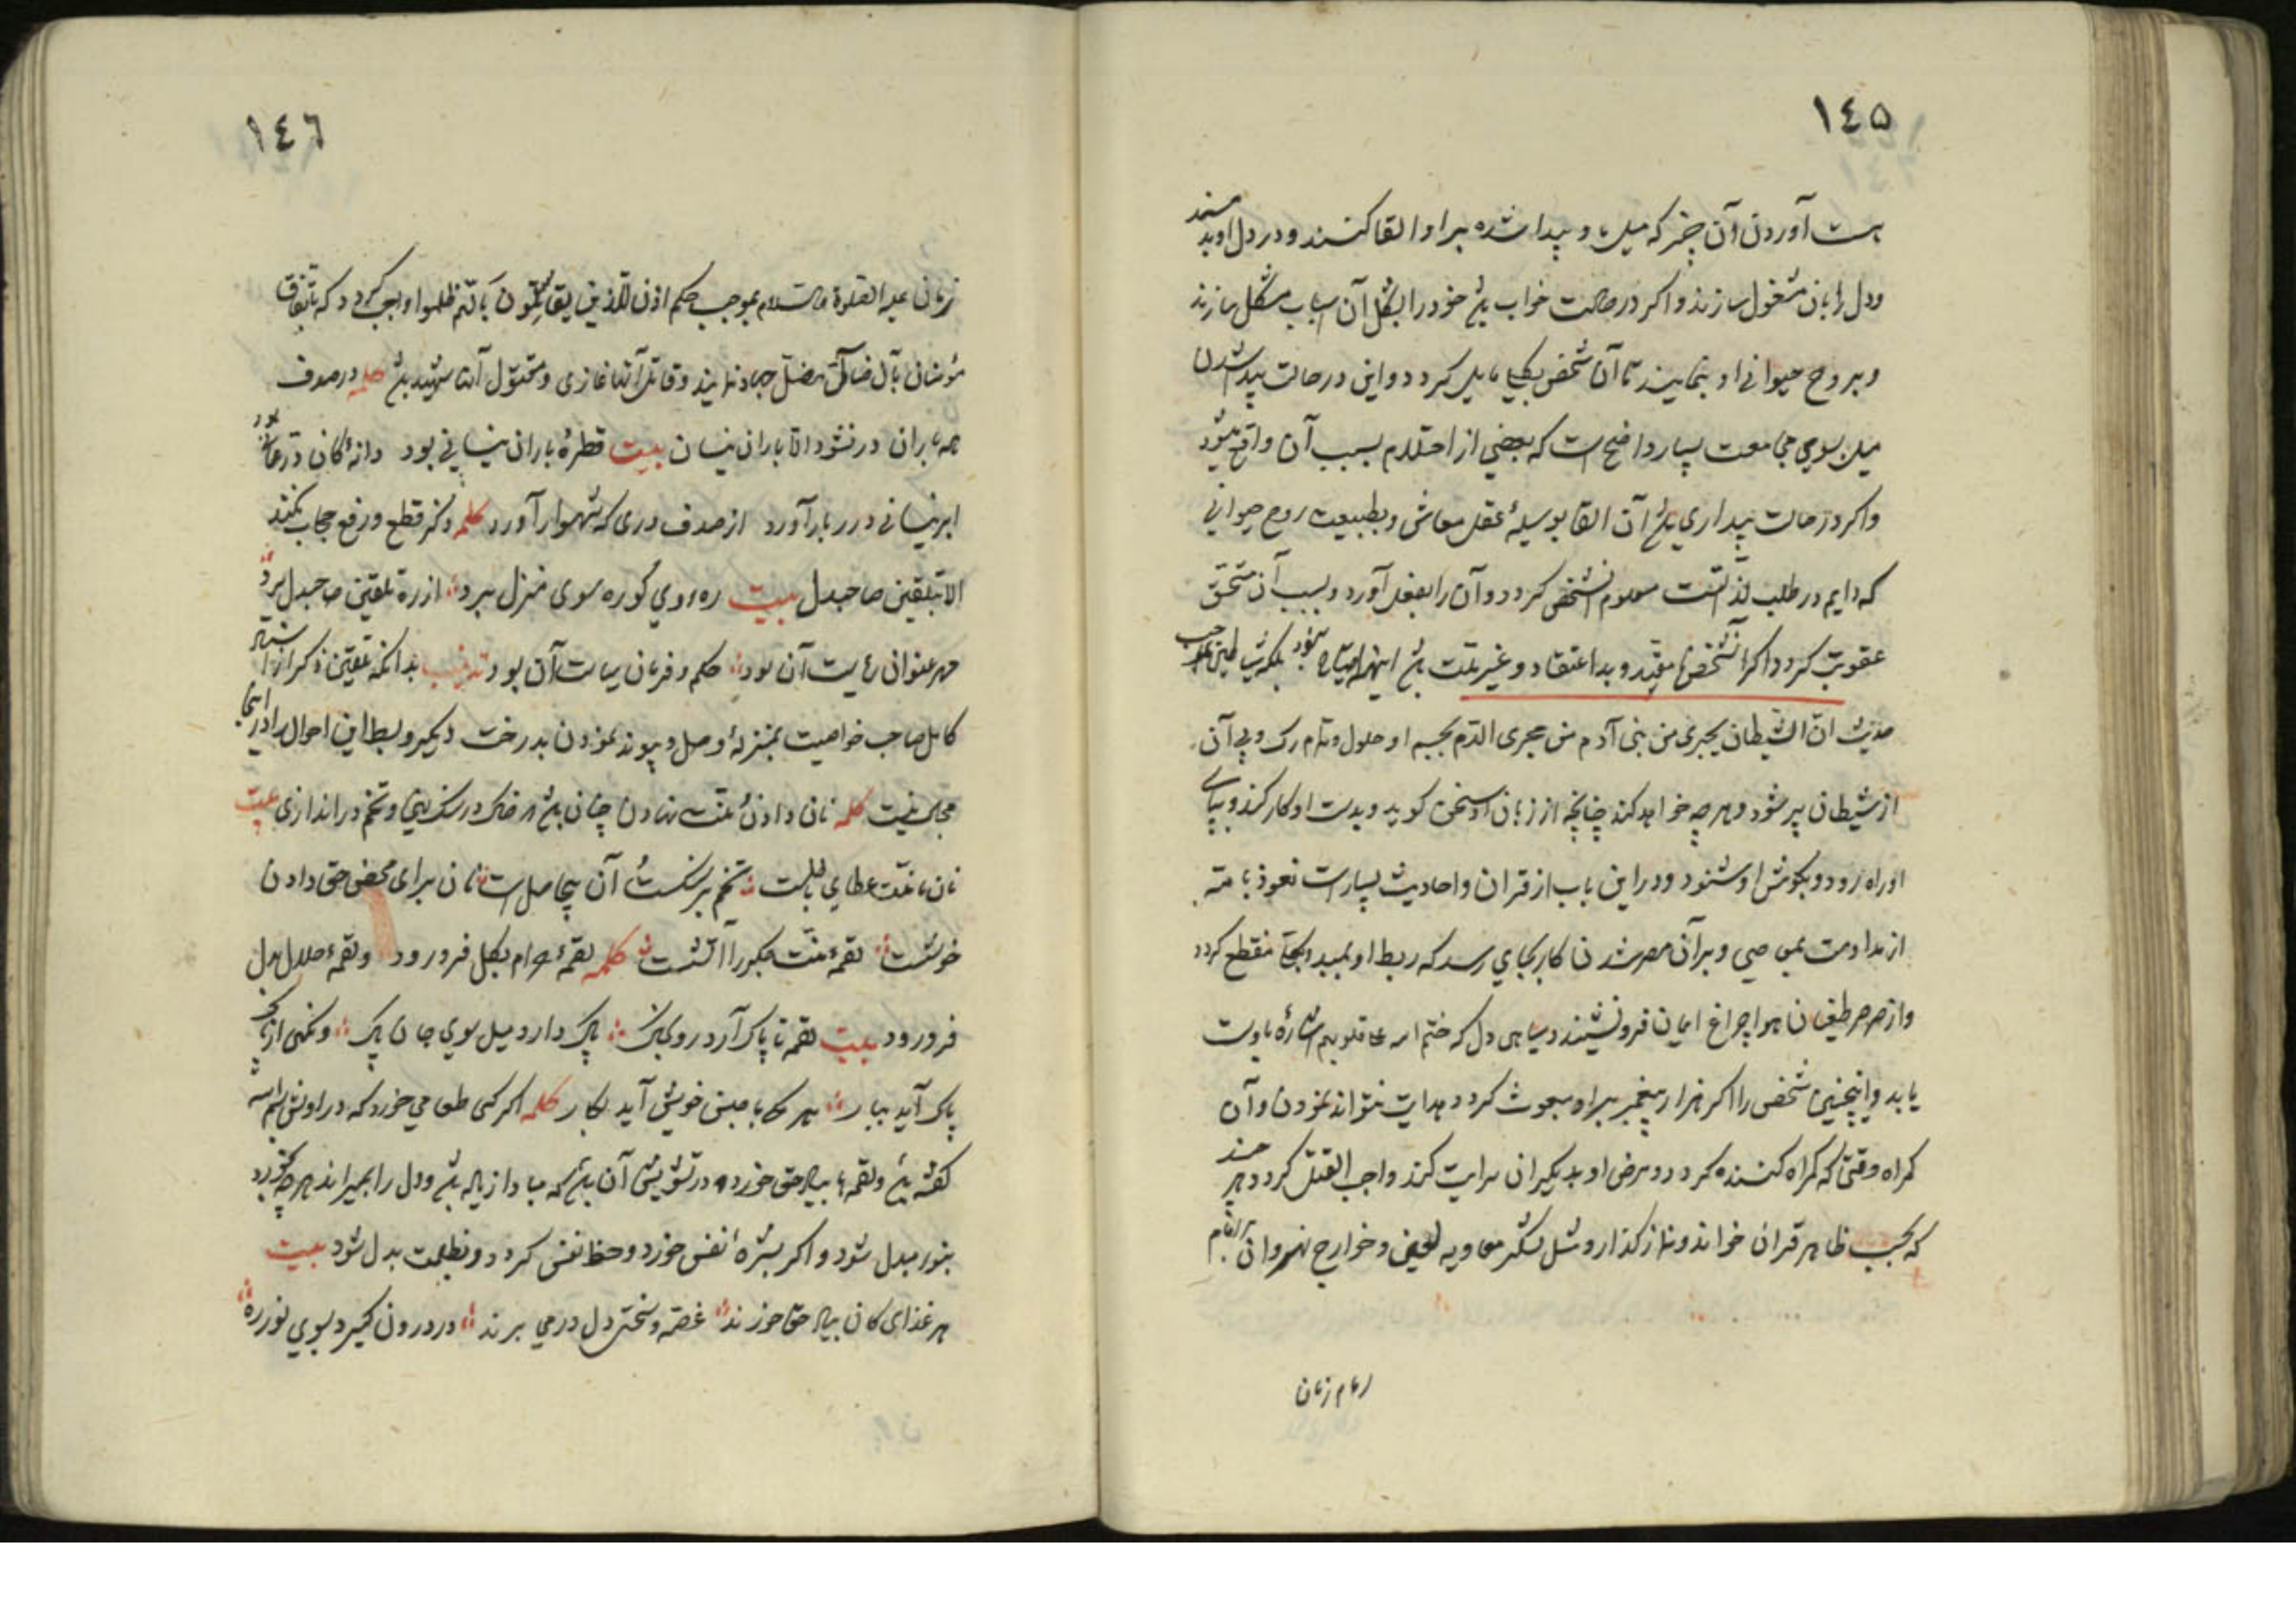 ١٤٥
بدست آوردن آن چیز که میل باو پیدا شده براو القا کنند و در دل او بد مسند
ودل را بآن مشغول سازند و اکر در حالت خواب باشد خود را بشکل آن اسباب مشکل سازند
وبروح حیوانی او بنمایند تا آن شخص بکلی مایل کردد و این در حالت پیدا شدن
میل بسوی مجامعت بسیار واضح است که بعضی از احتلام بسبب آن واقع میشود
واکر در حالت بیداری باشد آن القا بوسیلهٔ عقل معاش وبطبیعت روح حیوانی
که دایم در طلب لذّاتست معلوم آنشخص کردد و آن را بفعل آورد و بسبب آن مستحق
عقوبت کردد و اکر آنشخص نا مقید و بد اعتقاد و غیر ملت باشد اینهمه احتیاج نبود بلکه شیاطین
حدیث انّ الشیطان یجری من بنی آدم من مجری الدّم بجسم او حلول وتمام رک و پی آن
از شیطان پر شود و هر چه خواهد کند چنانچه از زبان او سخن کوید و بدست او کار کند و بپای
او راه رود و بکوش او شنود و در این باب از قران و احادیث بسیار است نعوذ بالله
از مداومت بمعاصی و بر آن مصر شدن کار بجایی رسد که ربط او بمبدا بکلی منقطع کردد
واز صرصر طغیان هوا چراغ ایمان فرونشیند و سیاهی دل که ختم الله علی قلوبهم اشاره باوست
یابد و اینچنین شخص را اکر هزار پیغمبر براو مبعوث کردد هدایت نتواند نمودن و آن
کمراه وقتی که کمراه کننده کردد و مرض او بدیکران سرایت کند واجب القتل کردد هر چند
که بحسب ظاهر قران خواند و نماز کذارد و مثل لشکر معاویه لعین و خوارج نهروان
امام زمان
١٤٦
زمان علیه الصلوة والسّلام بموجب حکم اذن للّذین یقاتلون بانّهم ظلموا واجب کردد که باتفاق
مؤمنان بآن ضالّ مضلّ جهاد نمایند و قاتل آنها غازی و مقتول آنها شهید باشد کلمه در صدف
همه باران در نشود الّا باران نیسان بیت قطرهٔ باران نیسانی بود دانهٔ کان در
ابر نیسانی درر بار آورد از صدف دری که شهوار آورد کلمه ذکر قطع و رفع حجاب نکند
الا بتلقین صاحبدل بیت رهروی کو ره سوی منزل برد از ره تلقین صاحبدل برد
مهر عنوانی که نیست آن بود حکم و فرمان سیاست آن بود تذنیب بدانکه تلقین ذکر از
کامل صاحب خواصیت بمنزلهٔ وصل و پیوند نمودن بدرخت دیکر و بسط این احوال را در اینجا
مجال نیست کلمه نان دادن و منّت نهادن چنان باشد که خاک در سنک بیزی و تخم در اندازی بیت
نان با منّت عطای باطلست تخم بر سنکست آن بیحاصل است نان برای محض حق دادن
خوشست لقمهٔ منّت مکیر آن آتشست کلمه لقمهٔ حرام بکل فرورود ولقمهٔ حلال بدل
فرورود بیت لقمه ناپاک آرد روی بخاک پاک دارد میل سوی جان پاک
پاک آید ببار هر که با جنس خویش آید بکار کلمه اکر کسی طعامی خورد که در اولش بسم الله
کفته باشد ولقمه بیاد حق خورد و در تشویش آن باشد که مبادا زیاده باشد ودل را بمیراند هر چه خورد
بنور مبدل شود و اکر بشرهٔ نفس خورد و حظ نفس کردد و بظلمت بدل شود بیت
هر غذای کان بیاد حق خورند غصه و سختی دل درمی برند در درون کیرد بوی نور ره